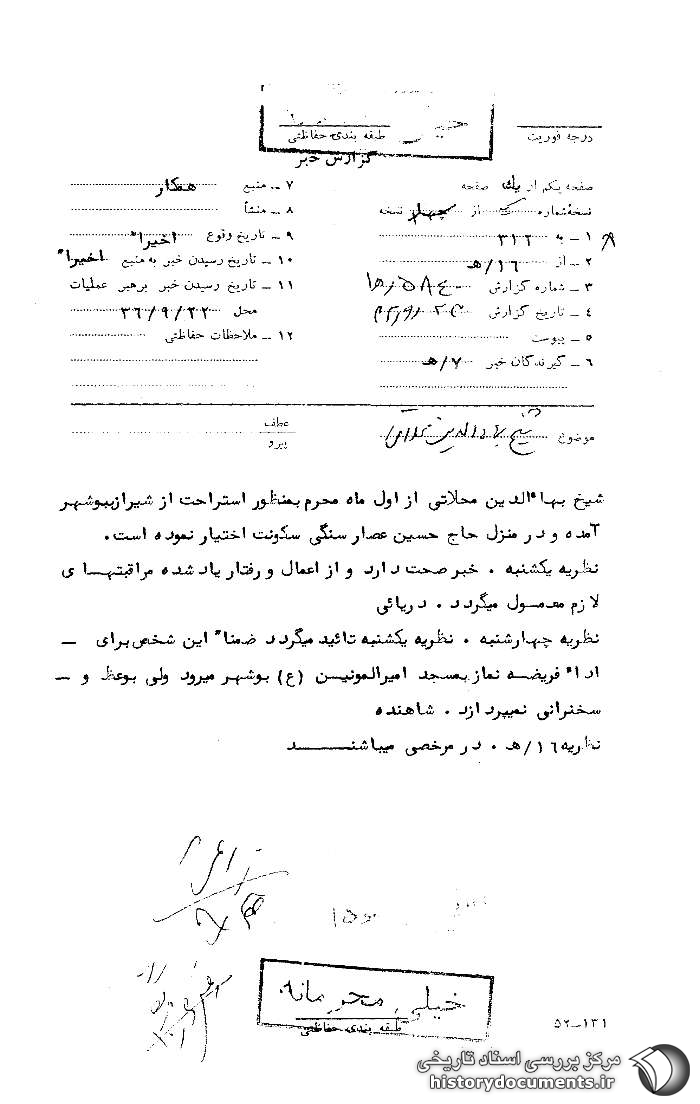 خیلی
طبقه بندی حفاظتی
درجه فوریت
گزارش خبر
صفحه یکم از یک صفحه
نسخهٔ شماره از چهار نسخه
۱ - به ۳۱۲
۲ - از ۱۶/ه‍
۳ - شماره گزارش
۴ - تاریخ گزارش
۵ - پیوست
۶ - گیرندگان خبر ۷/ه‍
۷ - منبع همکار
۸ - منشأ
۹ - تاریخ وقوع اخیرا"
۱۰ - تاریخ رسیدن خبر به منبع اخیرا"
۱۱ - تاریخ رسیدن خبر برهبر عملیات
محل ۳۶/۹/۲۲
۱۲ - ملاحظات حفاظتی
موضوع شیخ بهاءالدین محلاتی
عطف
پیرو
شیخ بهاءالدین محلاتی از اول ماه محرم بمنظور استراحت از شیراز ببوشهر
آمده و در منزل حاج حسین عصار سنگی سکونت اختیار نموده است.
نظریه یکشنبه . خبر صحت دارد و از اعمال و رفتار یاد شده مراقبتهای
لازم معمول میگردد . دریائی
نظریه چهارشنبه . نظریه یکشنبه تائید میگردد ضمنا" این شخص برای –
اداء فریضه نماز بمسجد امیرالمونیسن (ع) بوشهر میرود ولی بوعظ و –
سخنرانی نمیپردازد . شاهنده
نظریه ۱۶/ه‍ . در مرخصی میباشند
خیلی محرمانه
طبقه بندی حفاظتی
۵۲-۱۳۱
مرکز بررسی اسناد تاریخی
historydocuments.ir